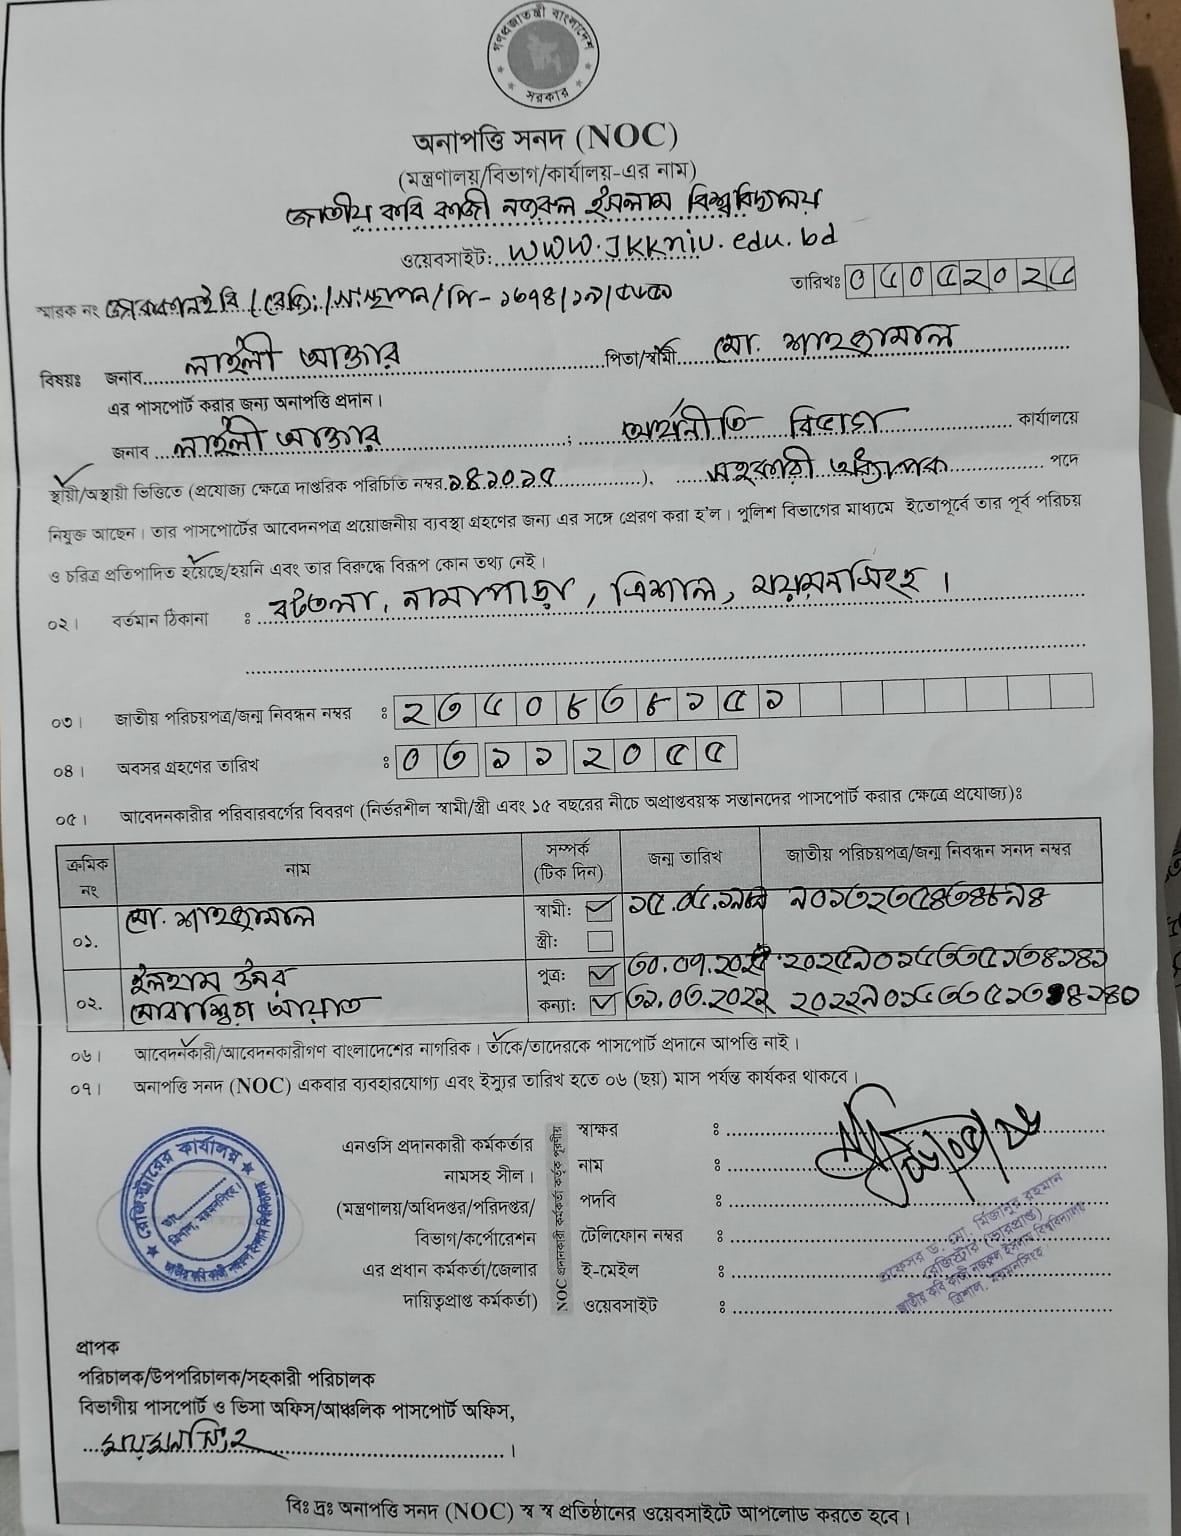 গণপ্রজাতন্ত্রী বাংলাদেশ
সরকার
অনাপত্তি সনদ (NOC)
(মন্ত্রণালয়/বিভাগ/কার্যালয়-এর নাম)
জাতীয় কবি কাজী নজরুল ইসলাম বিশ্ববিদ্যালয়
ওয়েবসাইট: www.jkkniu.edu.bd
তারিখঃ ০৫০৫২০২৫
স্মারক নং জাককানইবি/রেজিঃ/সংস্থাপন/পি-১৬৭৪/১৯/৫৮৫০
বিষয়ঃ জনাব লাইলী আক্তার পিতা/স্বামী মো. শাহকামাল
এর পাসপোর্ট করার জন্য অনাপত্তি প্রদান।
জনাব লাইলী আক্তার ; অর্থনীতি বিভাগ কার্যালয়ে
স্থায়ী/অস্থায়ী ভিত্তিতে (প্রযোজ্য ক্ষেত্রে দাপ্তরিক পরিচিতি নম্বর ১৪১০১৫ ), সহকারী অধ্যাপক পদে
নিযুক্ত আছেন। তার পাসপোর্টের আবেদনপত্র প্রয়োজনীয় ব্যবস্থা গ্রহণের জন্য এর সঙ্গে প্রেরণ করা হ'ল। পুলিশ বিভাগের মাধ্যমে ইতোপূর্বে তার পূর্ব পরিচয়
ও চরিত্র প্রতিপাদিত হয়েছে/হয়নি এবং তার বিরুদ্ধে বিরূপ কোন তথ্য নেই।
০২। বর্তমান ঠিকানা ঃ বটতলা, নামাপাড়া, ত্রিশাল, ময়মনসিংহ।
০৩। জাতীয় পরিচয়পত্র/জন্ম নিবন্ধন নম্বর ঃ ২৩৫০৮৩৮১৫১
০৪। অবসর গ্রহণের তারিখ ঃ ০৩১১২০৫৫
০৫। আবেদনকারীর পরিবারবর্গের বিবরণ (নির্ভরশীল স্বামী/স্ত্রী এবং ১৫ বছরের নীচে অপ্রাপ্তবয়স্ক সন্তানদের পাসপোর্ট করার ক্ষেত্রে প্রযোজ্য)ঃ
ক্রমিক নং নাম সম্পর্ক (টিক দিন) জন্ম তারিখ জাতীয় পরিচয়পত্র/জন্ম নিবন্ধন সনদ নম্বর
০১. মো. শাহকামাল স্বামী: ১৫.০৫. ৯০১৩২৩৫৪৩৪৮৯৪
স্ত্রী:
০২. ইলহাম উমর পুত্র: ৩০.০৭. ২০২৫৯০১৫৩৩৫১৩৪১৪১
কন্যা: ৩১.০৩.২০২২
০৬। আবেদনকারী/আবেদনকারীগণ বাংলাদেশের নাগরিক। তাঁকে/তাদেরকে পাসপোর্ট প্রদানে আপত্তি নাই।
০৭। অনাপত্তি সনদ (NOC) একবার ব্যবহারযোগ্য এবং ইস্যুর তারিখ হতে ০৬ (ছয়) মাস পর্যন্ত কার্যকর থাকবে।
এনওসি প্রদানকারী কর্মকর্তার
নামসহ সীল।
(মন্ত্রণালয়/অধিদপ্তর/পরিদপ্তর/
বিভাগ/কর্পোরেশন
এর প্রধান কর্মকর্তা/জেলার
দায়িত্বপ্রাপ্ত কর্মকর্তা)
NOC প্রদানকারী কর্মকর্তা কর্তৃক পূরণীয়
স্বাক্ষর ঃ
নাম ঃ
পদবি ঃ
টেলিফোন নম্বর ঃ
ই-মেইল ঃ
ওয়েবসাইট ঃ
রেজিস্ট্রারের কার্যালয়
ত্রিশাল, ময়মনসিংহ।
জাতীয় কবি কাজী নজরুল ইসলাম বিশ্ববিদ্যালয়
প্রফেসর ড. মো. মিজানুর রহমান
রেজিস্ট্রার (ভারপ্রাপ্ত)
জাতীয় কবি কাজী নজরুল ইসলাম বিশ্ববিদ্যালয়
ত্রিশাল, ময়মনসিংহ
প্রাপক
পরিচালক/উপপরিচালক/সহকারী পরিচালক
বিভাগীয় পাসপোর্ট ও ভিসা অফিস/আঞ্চলিক পাসপোর্ট অফিস,
ময়মনসিংহ ।
বিঃ দ্রঃ অনাপত্তি সনদ (NOC) স্ব স্ব প্রতিষ্ঠানের ওয়েবসাইটে আপলোড করতে হবে।